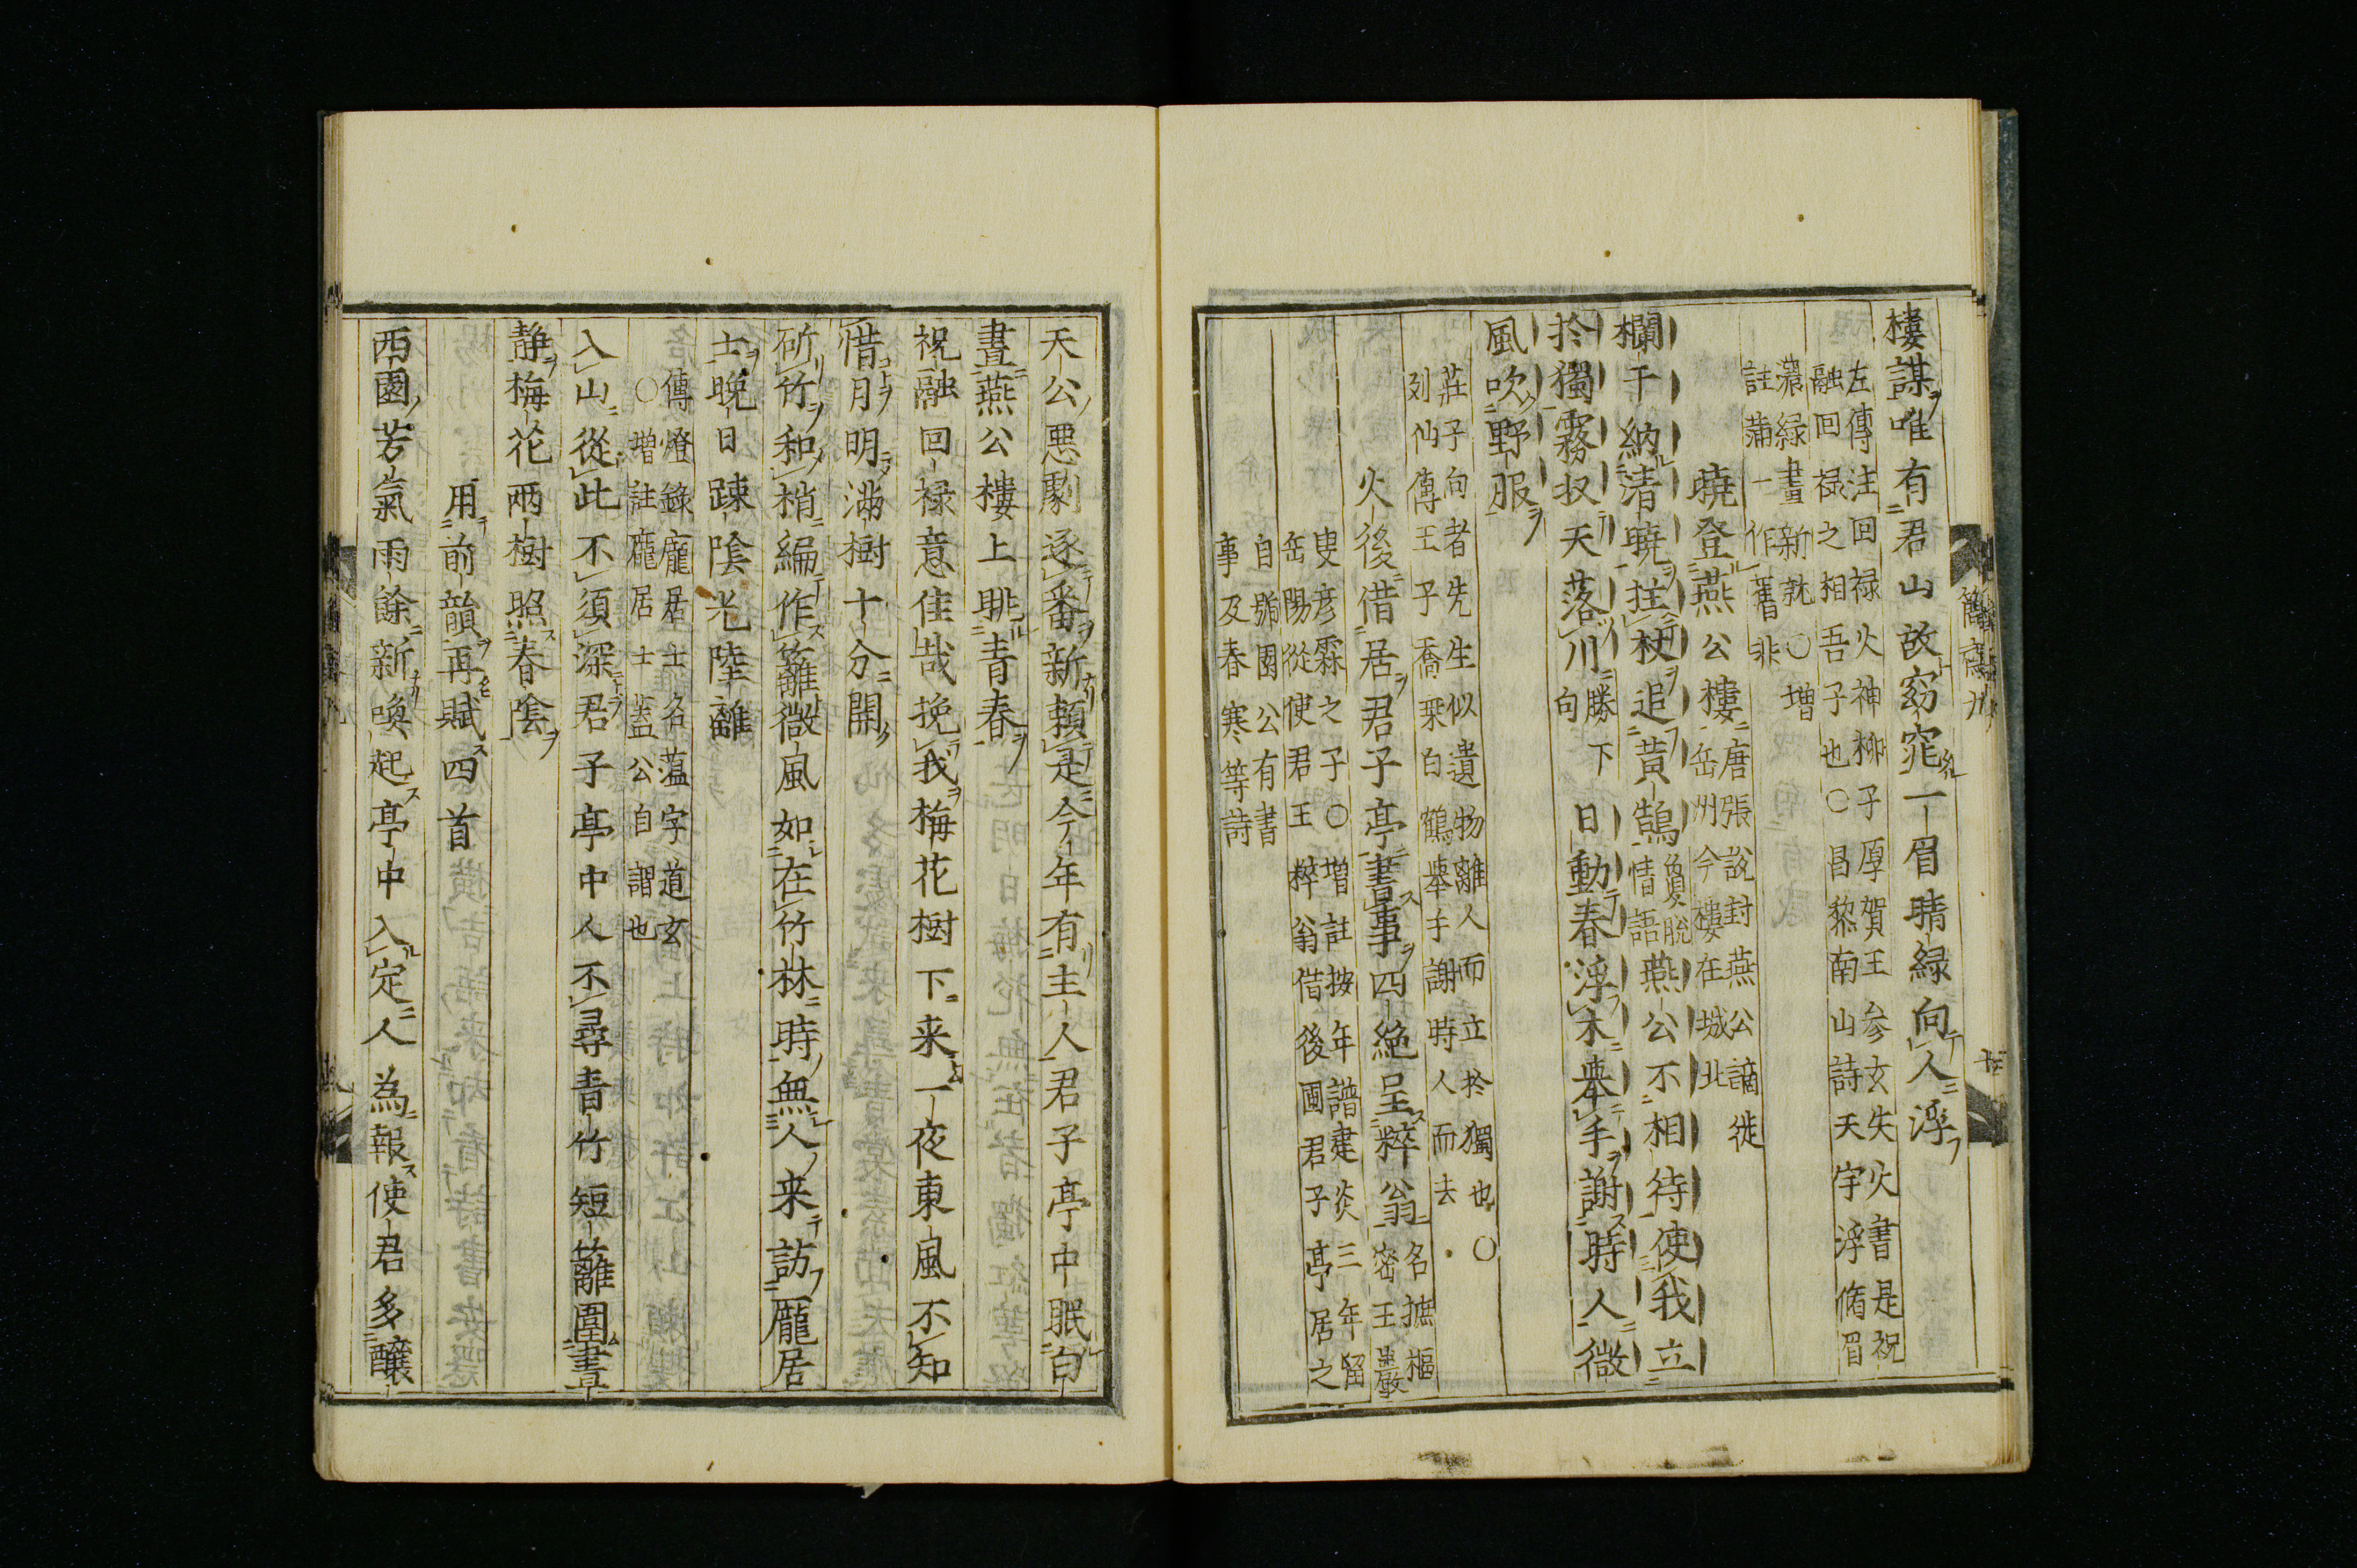 樓謀唯有君山故窈窕一眉晴緑向人浮
左傳注回禄火神柳子厚賀王参玄失火書是祝
融回禄之相吾子也○昌黎南山詩天宇浮脩眉
濃緑畫新就○増
註蒲一作舊非
暁登燕公樓
唐張説封燕公謫徙
岳州今樓在城北
欄干納清暁拄杖追黄鵠
負脱
情語
燕公不相待使我立
扵獨霧収天落川
勝下
向
日動春浮木擧手謝時人微
風吹野服
莊子向者先生似遺物離人而立扵獨也○
列仙傳王子喬乗白鶴擧手謝時人而去
火後借居君子亭書事四絶呈粹翁
名摭樞
密王巖
叟彦霖之子○増註按年譜建炎三年留
岳陽從使君王粹翁借後圃君子亭居之
自號園公有書
事及春寒等詩
簡齋九
天公悪劇逐番新頼是今年有主人君子亭中眠白
晝燕公樓上眺青春
祝融回禄意佳哉挽我梅花樹下来一夜東風不知
惜月明満樹十分開
斫竹和梢編作籬微風如在竹林時無人来訪龐居
士晩日踈陰光陸離
傳燈錄龐居士名蘊字道玄
○増註龐居士蓋公自謂也
入山從此不須深君子亭中人不尋青竹短籬圍晝
静梅花兩樹照春陰
用前韻再賦四首
西園芳氣雨餘新喚起亭中入定人為報使君多釀